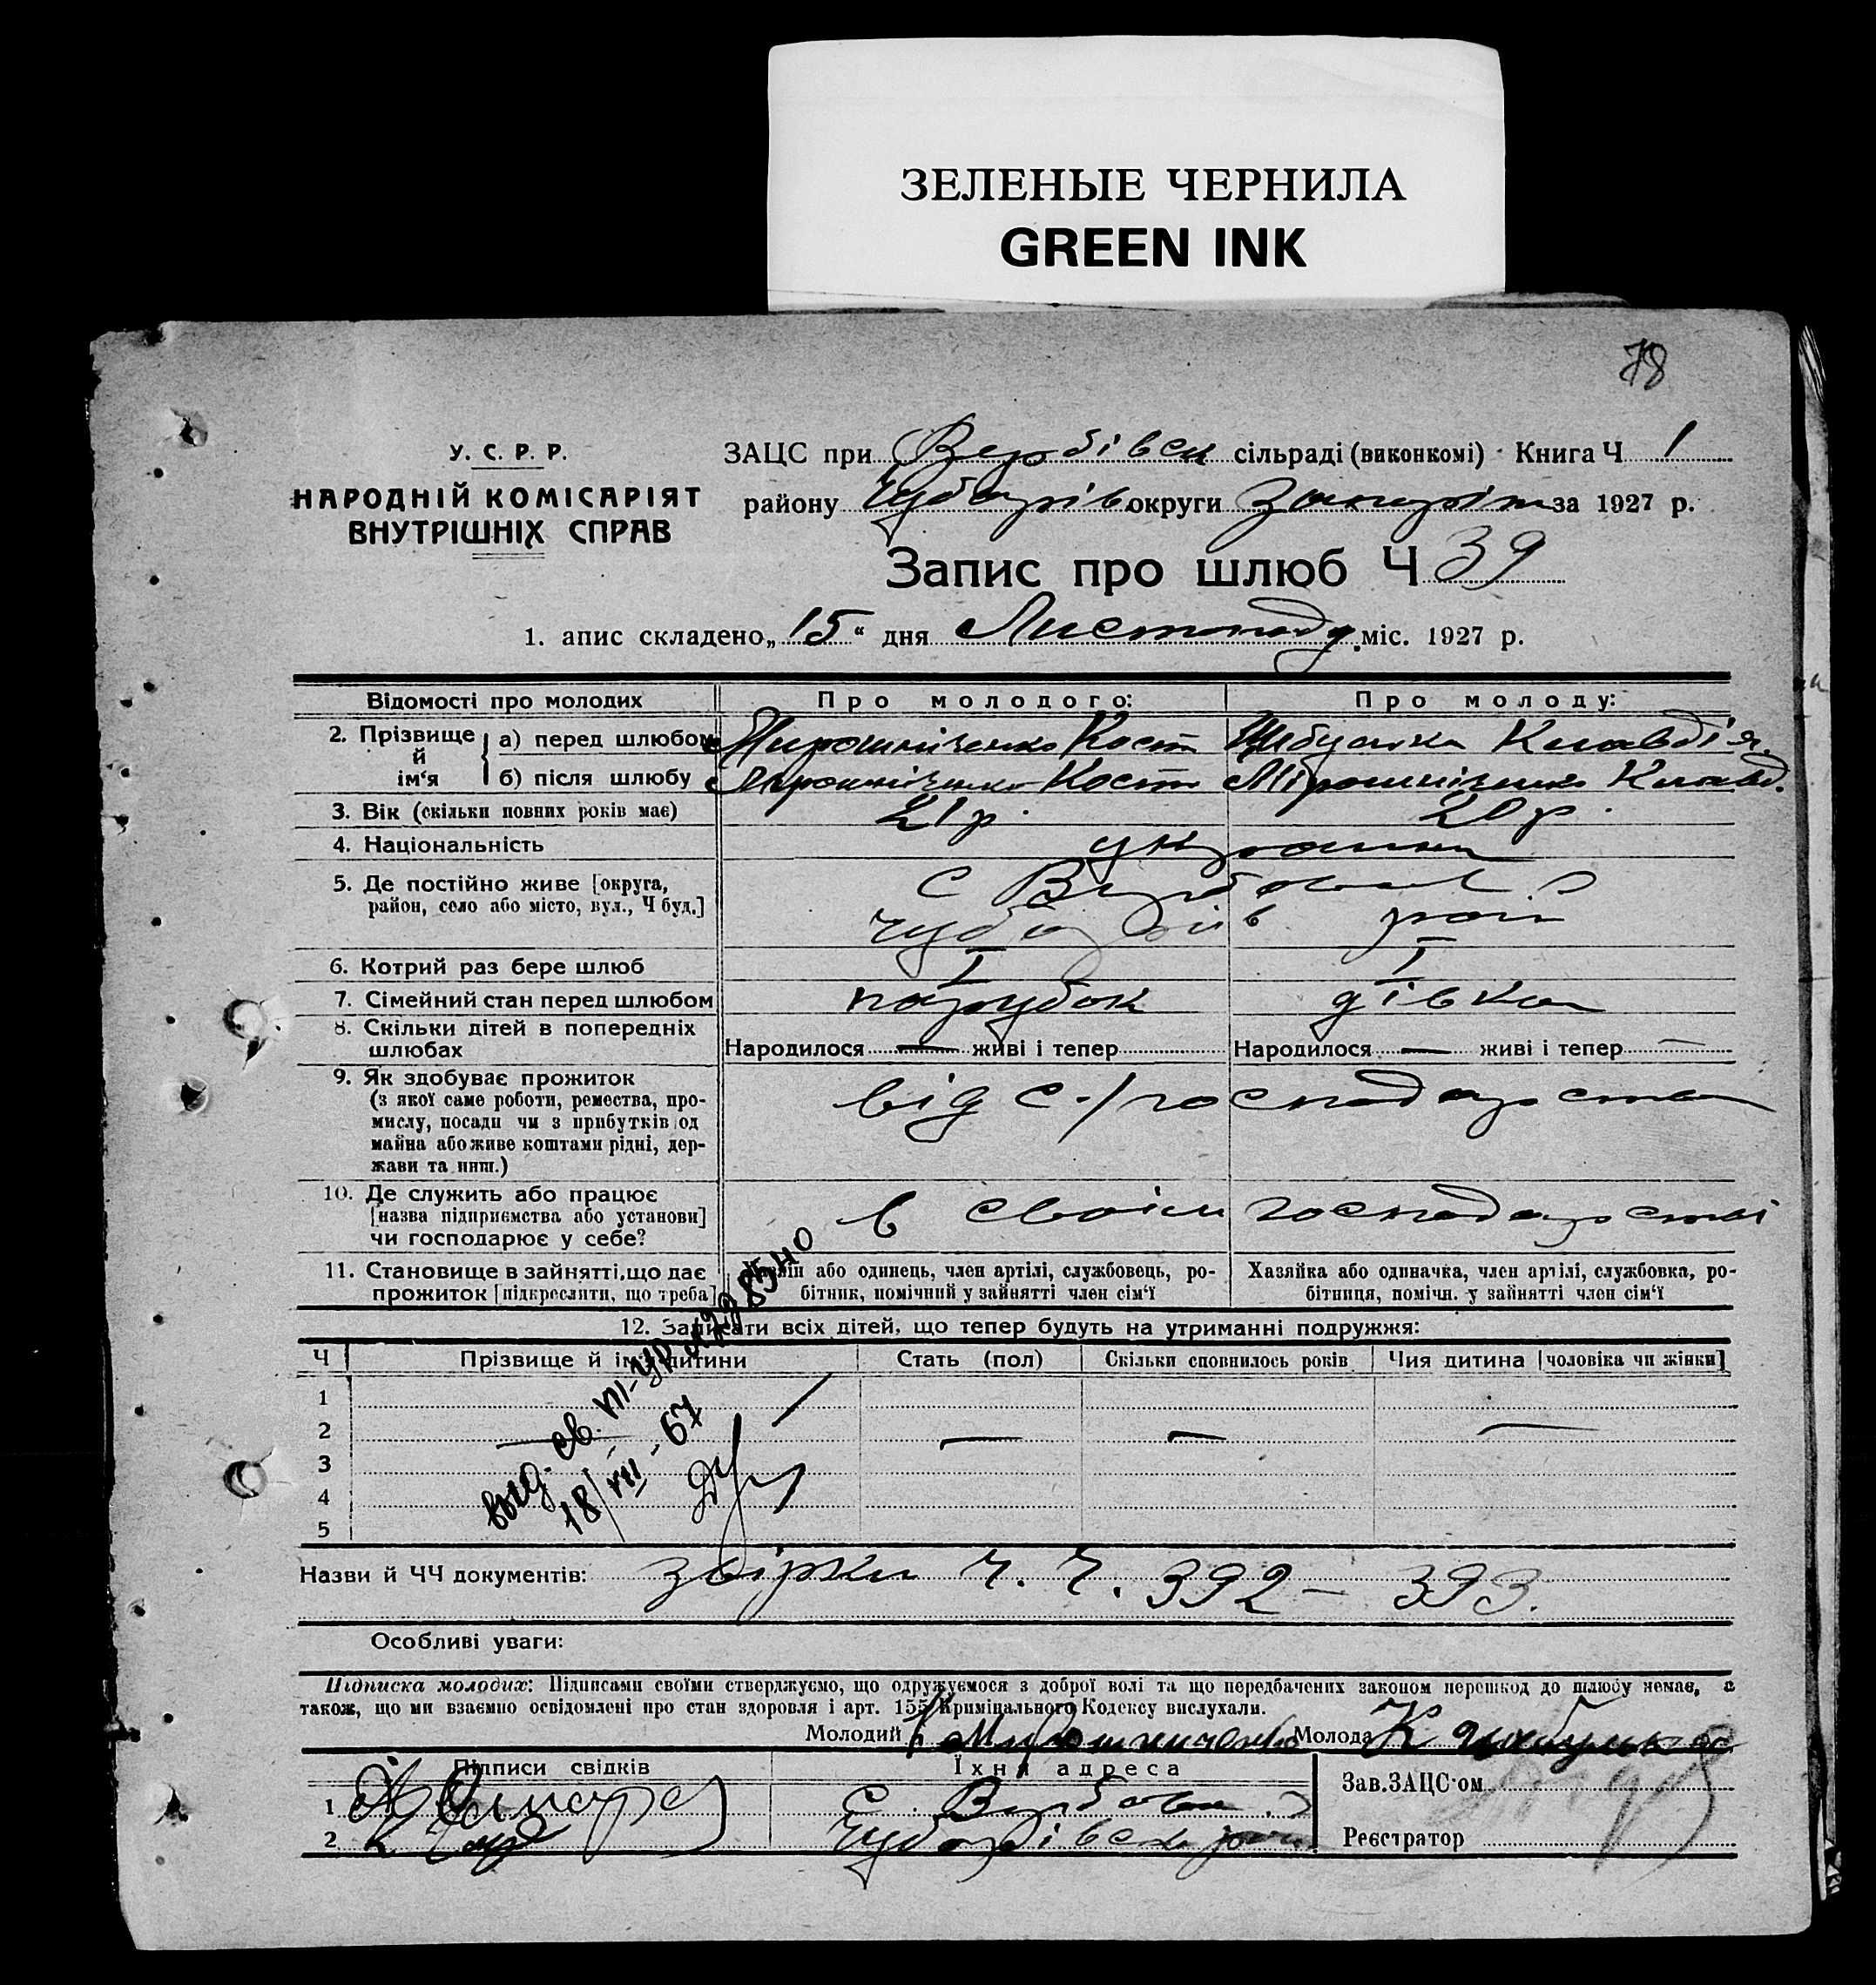 ЗЕЛЕНЫЕ ЧЕРНИЛА
GREEN INK
78
У. С. Р. Р.
НАРОДНІЙ КОМІСАРІЯТ
ВНУТРІШНІХ СПРАВ
ЗАЦС при Вербівск сільраді (виконкомі) · Книга Ч 1
району Чубарів округи Запоріж за 1927 р.
Запис про шлюб Ч 39
1. апис складено „15“ дня Листопаду міс. 1927 р.
Відомості про молодих Про молодого: Про молоду:
2. Прізвище й ім‘я
а) перед шлюбом Мирошниченко Кост Клавдія
б) після шлюбу Мірошніченко Кост Мірошніченко Клавд.
3. Вік (скільки повних років має) 21 р. 20 р.
4. Національність
5. Де постійно живе [округа, с Вербова
район, село або місто, вул., Ч буд.] Чубарів рай
6. Котрий раз бере шлюб I I
7. Сімейний стан перед шлюбом парубок дівка
8. Скільки дітей в попередніх
шлюбах Народилося — живі і тепер Народилося — живі і тепер —
9. Як здобуває прожиток від с./господарства
(з якої саме роботи, ремества, про-
мислу, посади чи з прибутків од
майна або живе коштами рідні, дер-
жави та инш.)
10. Де служить або працює в своім господарстві
[назва підприємства або установи]
чи господарює у себе?
11. Становище в зайнятті, що дає
прожиток [підкреслити, що треба]
або одинець, член артілі, службовець, ро-
бітник, помічний у зайнятті член сім‘ї
Хазяйка або одиначка, член артілі, службовка, ро-
бітниця, помічн. у зайнятті член сім‘ї
12. Записати всіх дітей, що тепер будуть на утриманні подружжя:
Ч Прізвище й ім‘я дитини Стать (пол) Скільки сповнилось років Чия дитина [чоловіка чи жінки]
1
2 — — — —
3
4
5
выд. св. VII-УР 85540
18/VII-67
Назви й ЧЧ документів: збірки ч. ч. 392 — 393.
Особливі уваги:
Підписка молодих: Підписами своїми стверджуємо, що одружуємося з доброї волі та що передбачених законом перешкод до шлюбу немає, а
також, що ми взаємно освідомлені про стан здоровля і арт. 155 Кримінального Кодексу вислухали.
Молодий К Мирошниченко Молода К
Підписи свідків Їхня адреса
1 С. Вербова
2 Чубарівськ рай
Зав. ЗАЦС‘ом
Реєстратор